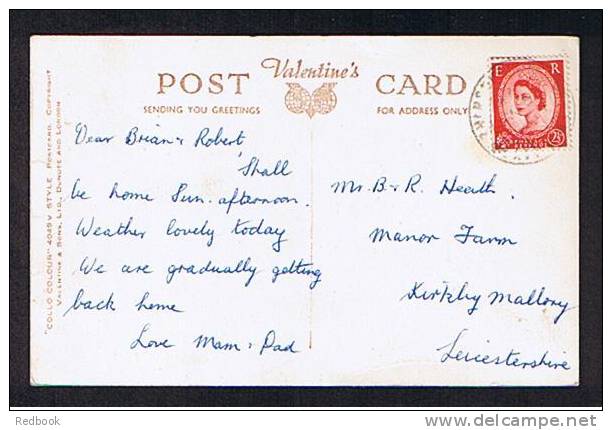 Valentine's
POST CARD
SENDING YOU GREETINGS
FOR ADDRESS ONLY
E R
2½
Dear Brian & Robert
Shall
be home Sun. afternoon.
Weather lovely today
We are gradually getting
back home
Love Mam & Dad
Mr B & R. Heath.
Manor Farm
Kirkby Mallory
Leicestershire
"COLLO COLOUR" STYLE POSTCARD. COPYRIGHT
VALENTINE & SONS, LTD., DUNDEE AND LONDON
Redbook
delcampe.net